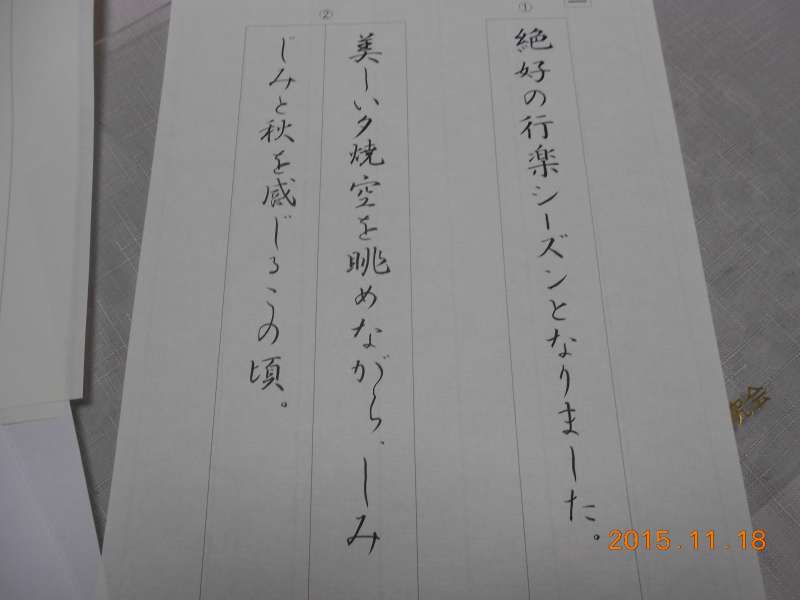 ①
絶好の行楽シーズンとなりました。
②
美しい夕焼空を眺めながら、しみ
じみと秋を感じるこの頃。
2015.11.18